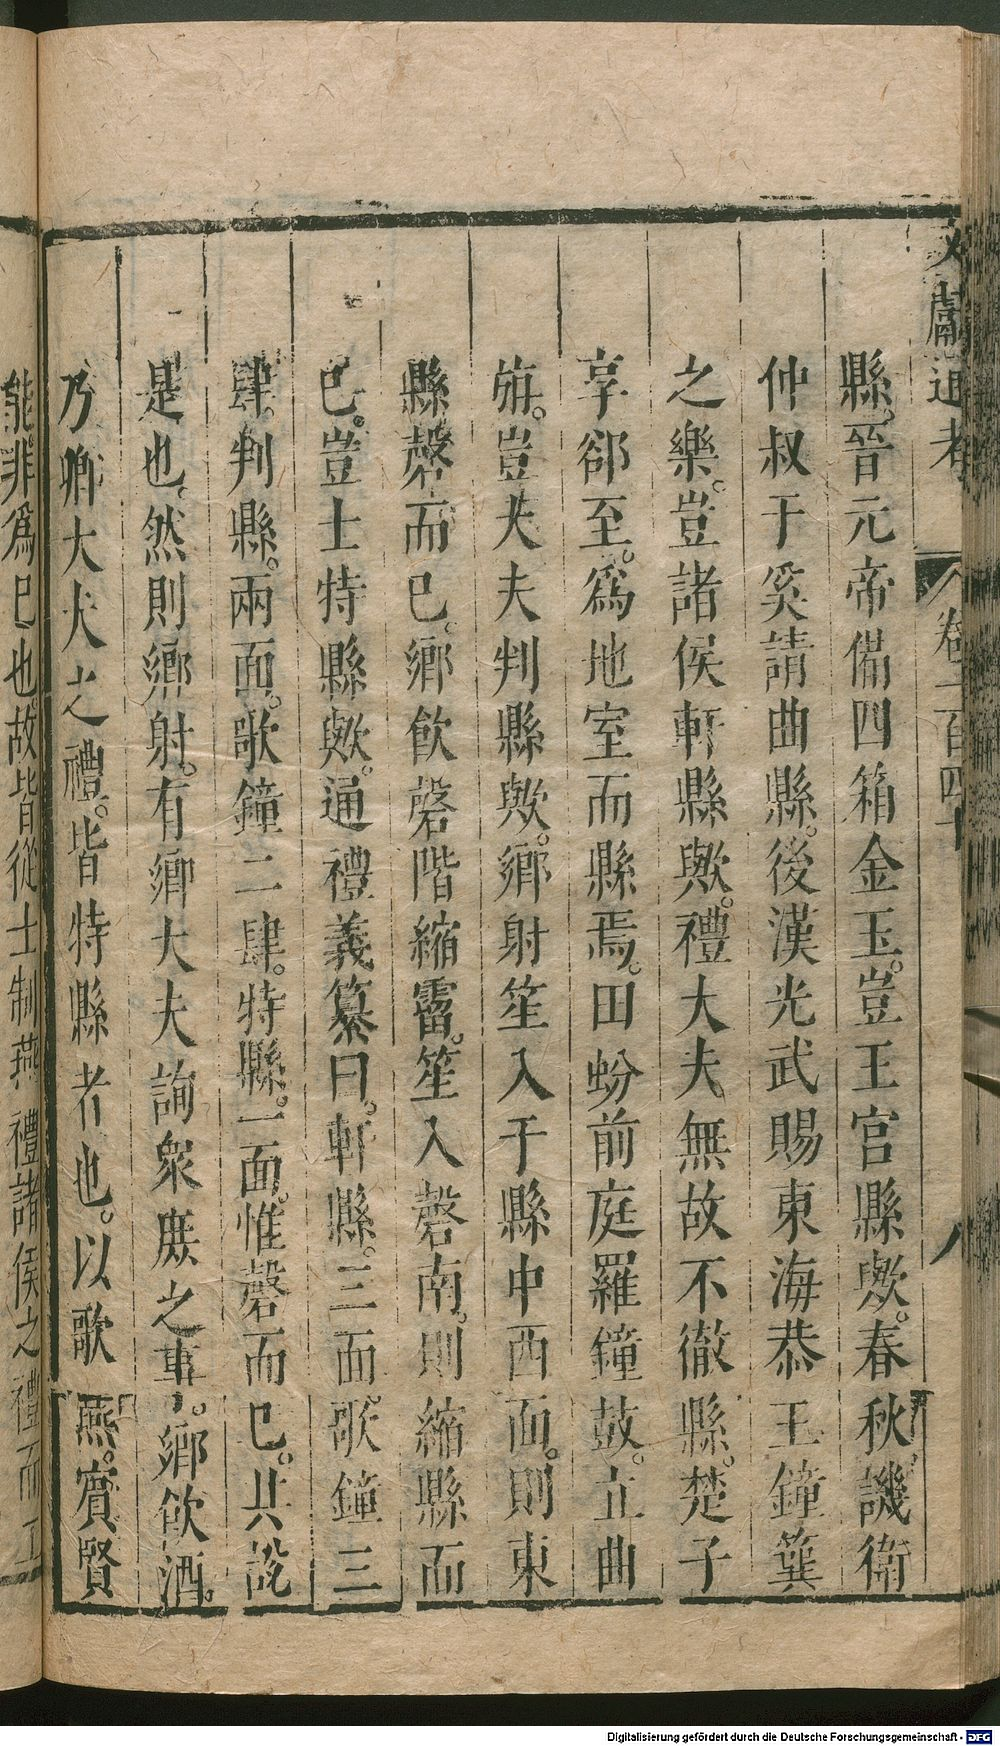 文獻通考 卷一百四十 八
縣。晉元帝備四箱金玉。豈王宫縣歟。春秋。譏衛
仲叔于奚請曲縣。後漢光武賜東海恭王鐘簨
之樂。豈諸侯軒縣歟。禮大夫無故不徹縣。楚子
享郤至。爲地室而縣焉。田蚡前庭羅鐘鼓。立曲
旃。豈大夫判縣歟。鄉射笙入于縣中西面。則東
縣磬而已。鄉飲磬階縮霤。笙入磬南。則縮縣而
已。豈士特縣歟。通禮義纂曰。軒縣。三面。歌鐘三
肆。判縣。兩面。歌鐘二肆。特縣。一面。惟磬而已。其說
是也。然則鄉射。有鄉大夫詢衆庶之事。鄉飲酒。
乃鄉大夫之禮。皆特縣者也。以歌燕。賓賢
能。非爲已也。故皆從士制燕禮諸侯之禮而工
Digitalisierung gefördert durch die Deutsche Forschungsgemeinschaft - DFG